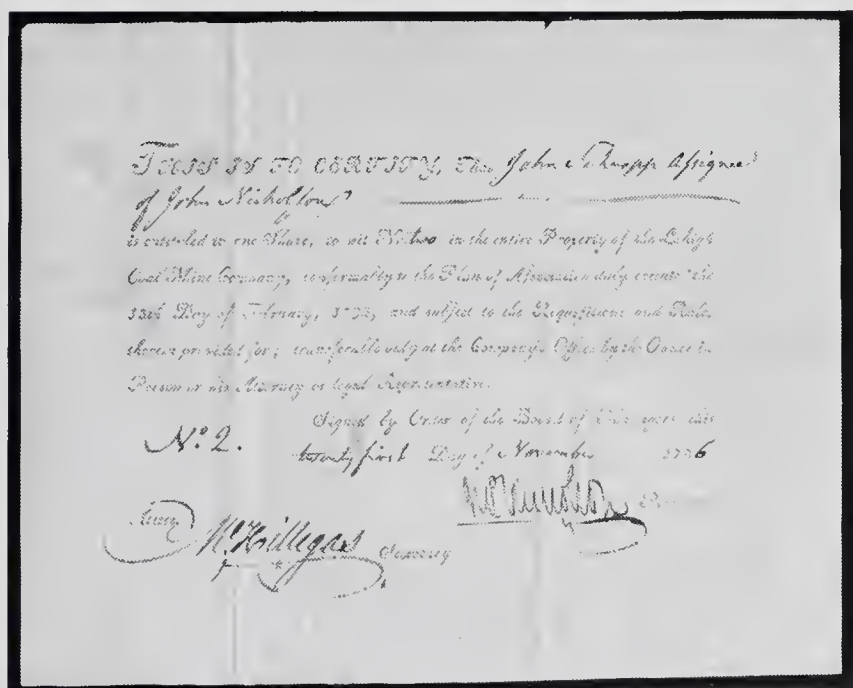 THIS IS TO CERTIFY, That John Assignee
of John Nicholson
is entitled to one Share, to wit No. two in the entire Property of the Lehigh
Coal Mine Company, conformably to the Plan of Association duly the
13th Day of February, 1792, and subject to the Requisitions and Rules
therein provided for; transferable only at the Company's Office by the Owner in
Person or his Attorney or legal Representative.
Signed by Order of the Board of Managers this
No. 2. twenty first Day of November 1796
Attest
Hillegas Secretary